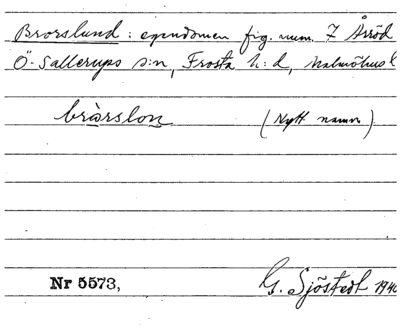 Brorslund: egendomen fig. num. 7 Årröd
Ö. Sallerups s:n, Frosta h:d, Malmöhus l
bràrslon (Nytt namn)
Nr 5573, G. Sjöstedt 1940